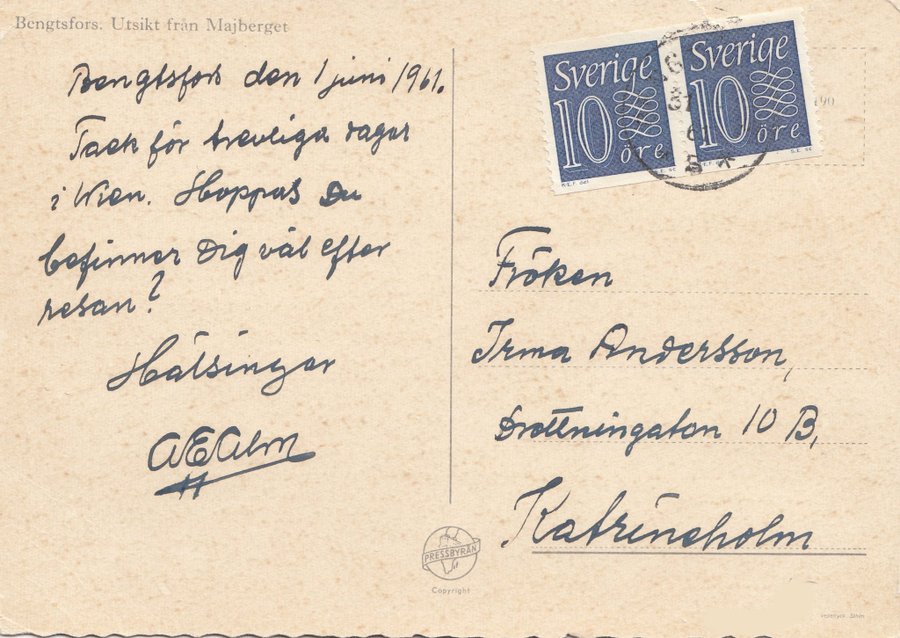 Bengtsfors. Utsikt från Majberget
Bengtsfors den 1 juni 1961.
Tack för trevliga dagar
i Wien. Hoppas Du
befinner Dig väl efter
resan?
Hälsingar
AEAlm
Sverige
10 öre
Sverige
10 öre
61
Fröken
Irma Andersson,
Drottningatan 10 B,
Katrineholm
PRESSBYRÅN
Copyright